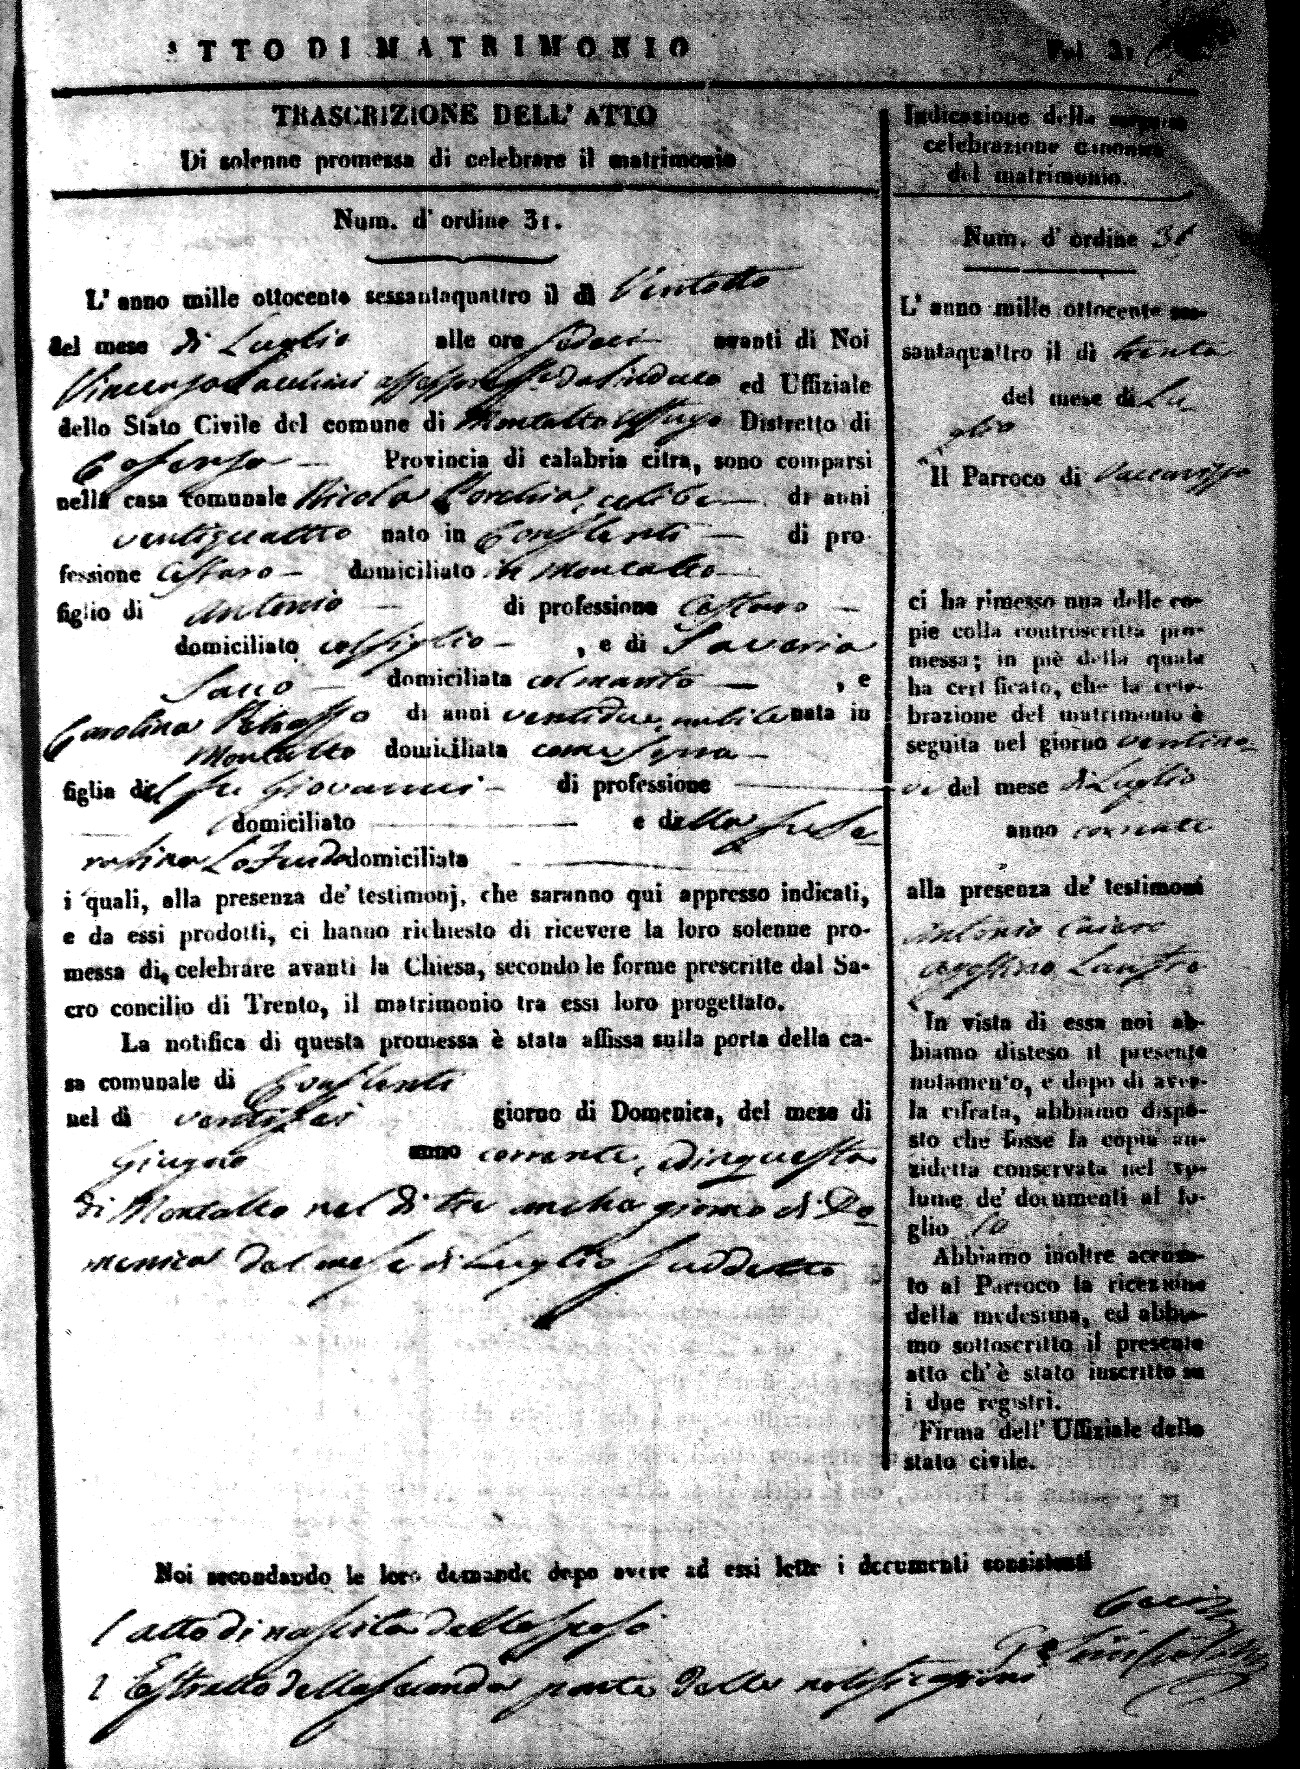 ATTO DI MATRIMONIO
Fol 2:
TRASCRIZIONE DELL' ATTO
Di solenne promessa di celebrare il matrimonio
Num. d' ordine 31.
L' anno mille ottocento sessantaquattro il dì Ventotto
del mese di Luglio alle ore sedeci avanti di Noi
Vincenzo Sacchini assessore da Sindaco ed Uffiziale
dello Stato Civile del comune di Montalto Uffugo Distretto di
Cosenza Provincia di calabria citra, sono comparsi
nella casa comunale Nicola Porchia, celibe di anni
ventiquattro nato in Conflenti di pro-
fessione Cestaro domiciliato in Montalto
figlio di Antonio di professione Cestaro
domiciliato col figlio , e di Saveria
Sacco domiciliata col marito , e
Carolina di anni ventidue, nubile nata in
Montalto domiciliata come sopra
figlia del fu Giovanni di professione
domiciliato e della fu Se-
rafina Lo Feudo domiciliata
i quali, alla presenza de' testimonj, che saranno qui appresso indicati,
e da essi prodotti, ci hanno richiesto di ricevere la loro solenne pro-
messa di celebrare avanti la Chiesa, secondo le forme prescritte dal Sa-
cro concilio di Trento, il matrimonio tra essi loro progettato.
La notifica di questa promessa è stata affissa sulla porta della ca-
sa comunale di Conflenti
nel dì ventisei giorno di Domenica, del mese di
Giugno anno corrente, ed in questa
di Montalto nel dì tre anche giorno di Do-
menica del mese di Luglio suddetto
Noi secondando le loro demande dopo avere ad essi lette i documenti consistenti
1 atto di nascita delli sposi
2 Estratto della seconda parte delle notificazioni
Indicazione della seguita
celebrazione canonica
del matrimonio.
Num. d' ordine 31
L' anno mille ottocento ses-
santaquattro il dì trenta
del mese di Lu-
glio
Il Parroco di Vaccarizzo
ci ha rimesso una delle co-
pie colla controscritta pro-
messa; in piè della quale
ha certificato, che la cele-
brazione del matrimonio è
seguita nel giorno ventino-
ve del mese di Luglio
anno corrente
alla presenza de' testimoni
Antonio
In vista di essa noi ab-
biamo disteso il presente
notamento, e dopo di aver-
la cifrata, abbiamo dispo-
sto che fosse la copia an-
zidetta conservata nel vo-
lume de' documenti al fo-
glio 10
Abbiamo inoltre accusa-
to al Parroco la ricezione
della medesima, ed abbia-
mo sottoscritto il presente
atto ch' è stato inscritto su
i due registri.
Firma dell' Uffiziale dello
stato civile.